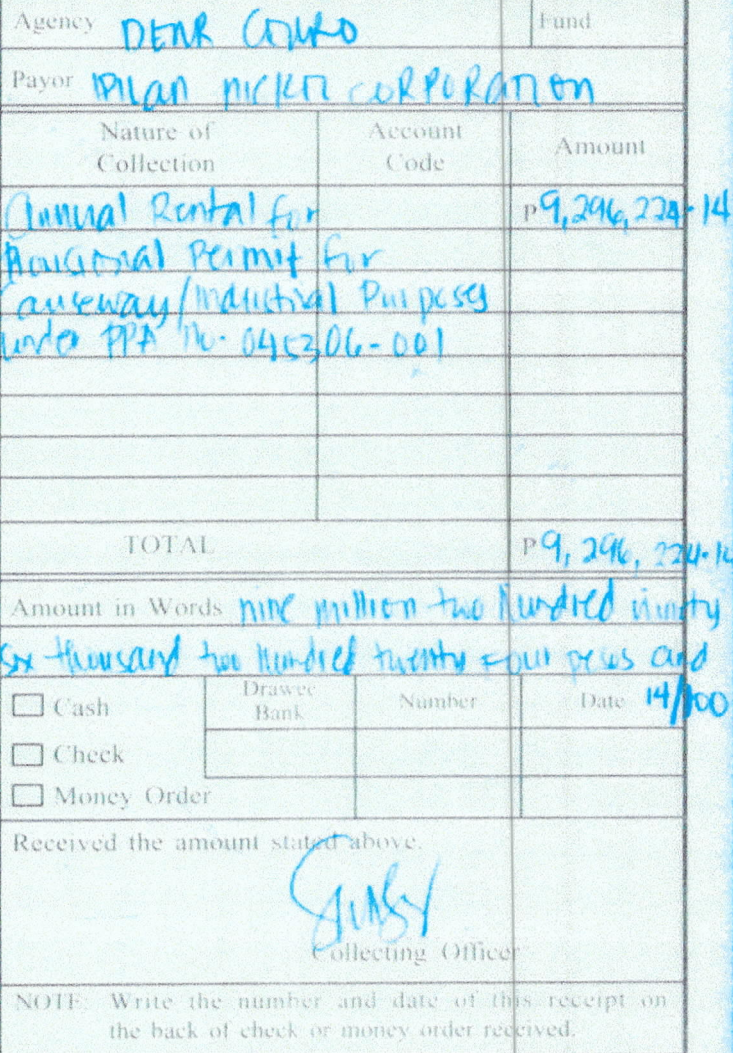 Agency DENR CENRO Fund
Payor IPILAN NICKEL CORPORATION
Nature of Collection Account Code Amount
Annual Rental for P 9,296,224.14
Provisional Permit for
Causeway/Industrial Purposes
under PPA No. 045306-001
TOTAL P 9,296,224.14
Amount in Words nine million two hundred ninety
six thousand two hundred twenty four pesos and
14/100
Cash Drawee Bank Number Date
Check
Money Order
Received the amount stated above.
Collecting Officer
NOTE: Write the number and date of this receipt on
the back of check or money order received.